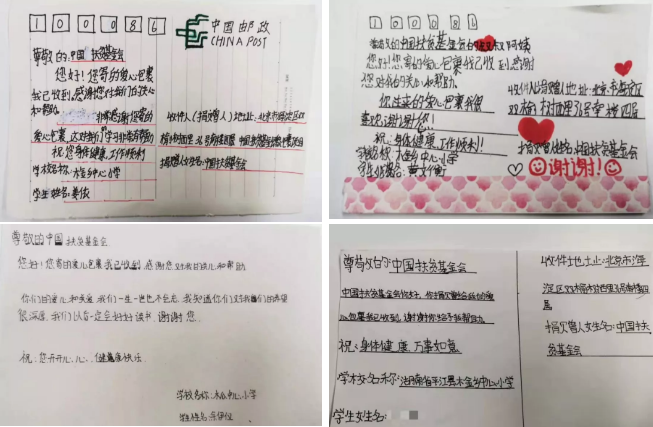 100086
中国邮政
CHINA POST
尊敬的:中国扶贫基金会
您好!您寄的爱心包裹
我已收到,感谢您对我们的关心
和帮助。
非常感谢您的
爱心包裹,这对我们学习非常有帮助
祝您身体健康,工作顺利
学校名称:木金乡中心小学
学生姓名:
收件人(捐赠人)地址:北京市海淀区双
榆树西里36号南楼四层
捐赠人姓名:中国扶贫基金会
100081
尊敬的中国扶贫基金会的叔叔阿姨
您好!您寄的爱心包裹我已收到,感谢
您对我的关心和帮助。
你们送来的爱心包裹我很
喜欢谢谢你!
祝:身体健康,工作顺利!
学校名称:木金乡中心小学
学生姓名:
收件人捐赠人地址:北京市海淀区
双榆树西里36号南楼四层
捐赠人姓名:中国扶贫基金会
谢谢!
尊敬的中国扶贫基金会
您好!您寄的爱心包裹我已收到,感谢您对我的关心和帮助
你们的爱心和关爱,我们一生一世也不会忘,我知道你们对我们的希望
很深厚,我们以后一定会好好读书,谢谢您.
祝:您开开心心、健康快乐
学校名称:木金中心小学
姓名:
尊敬的:中国扶贫基金会
中国扶贫基金会你好,你捐赠给我的爱
心包裹我已收到,谢谢你给予我帮助
祝:身体健康,万事如意
学校名称:湖南省平江县木金乡中心小学
学生姓名:
收件地址:北京市海
淀区双榆树西里36号南楼四
层
捐赠人姓名:中国扶
贫基金会